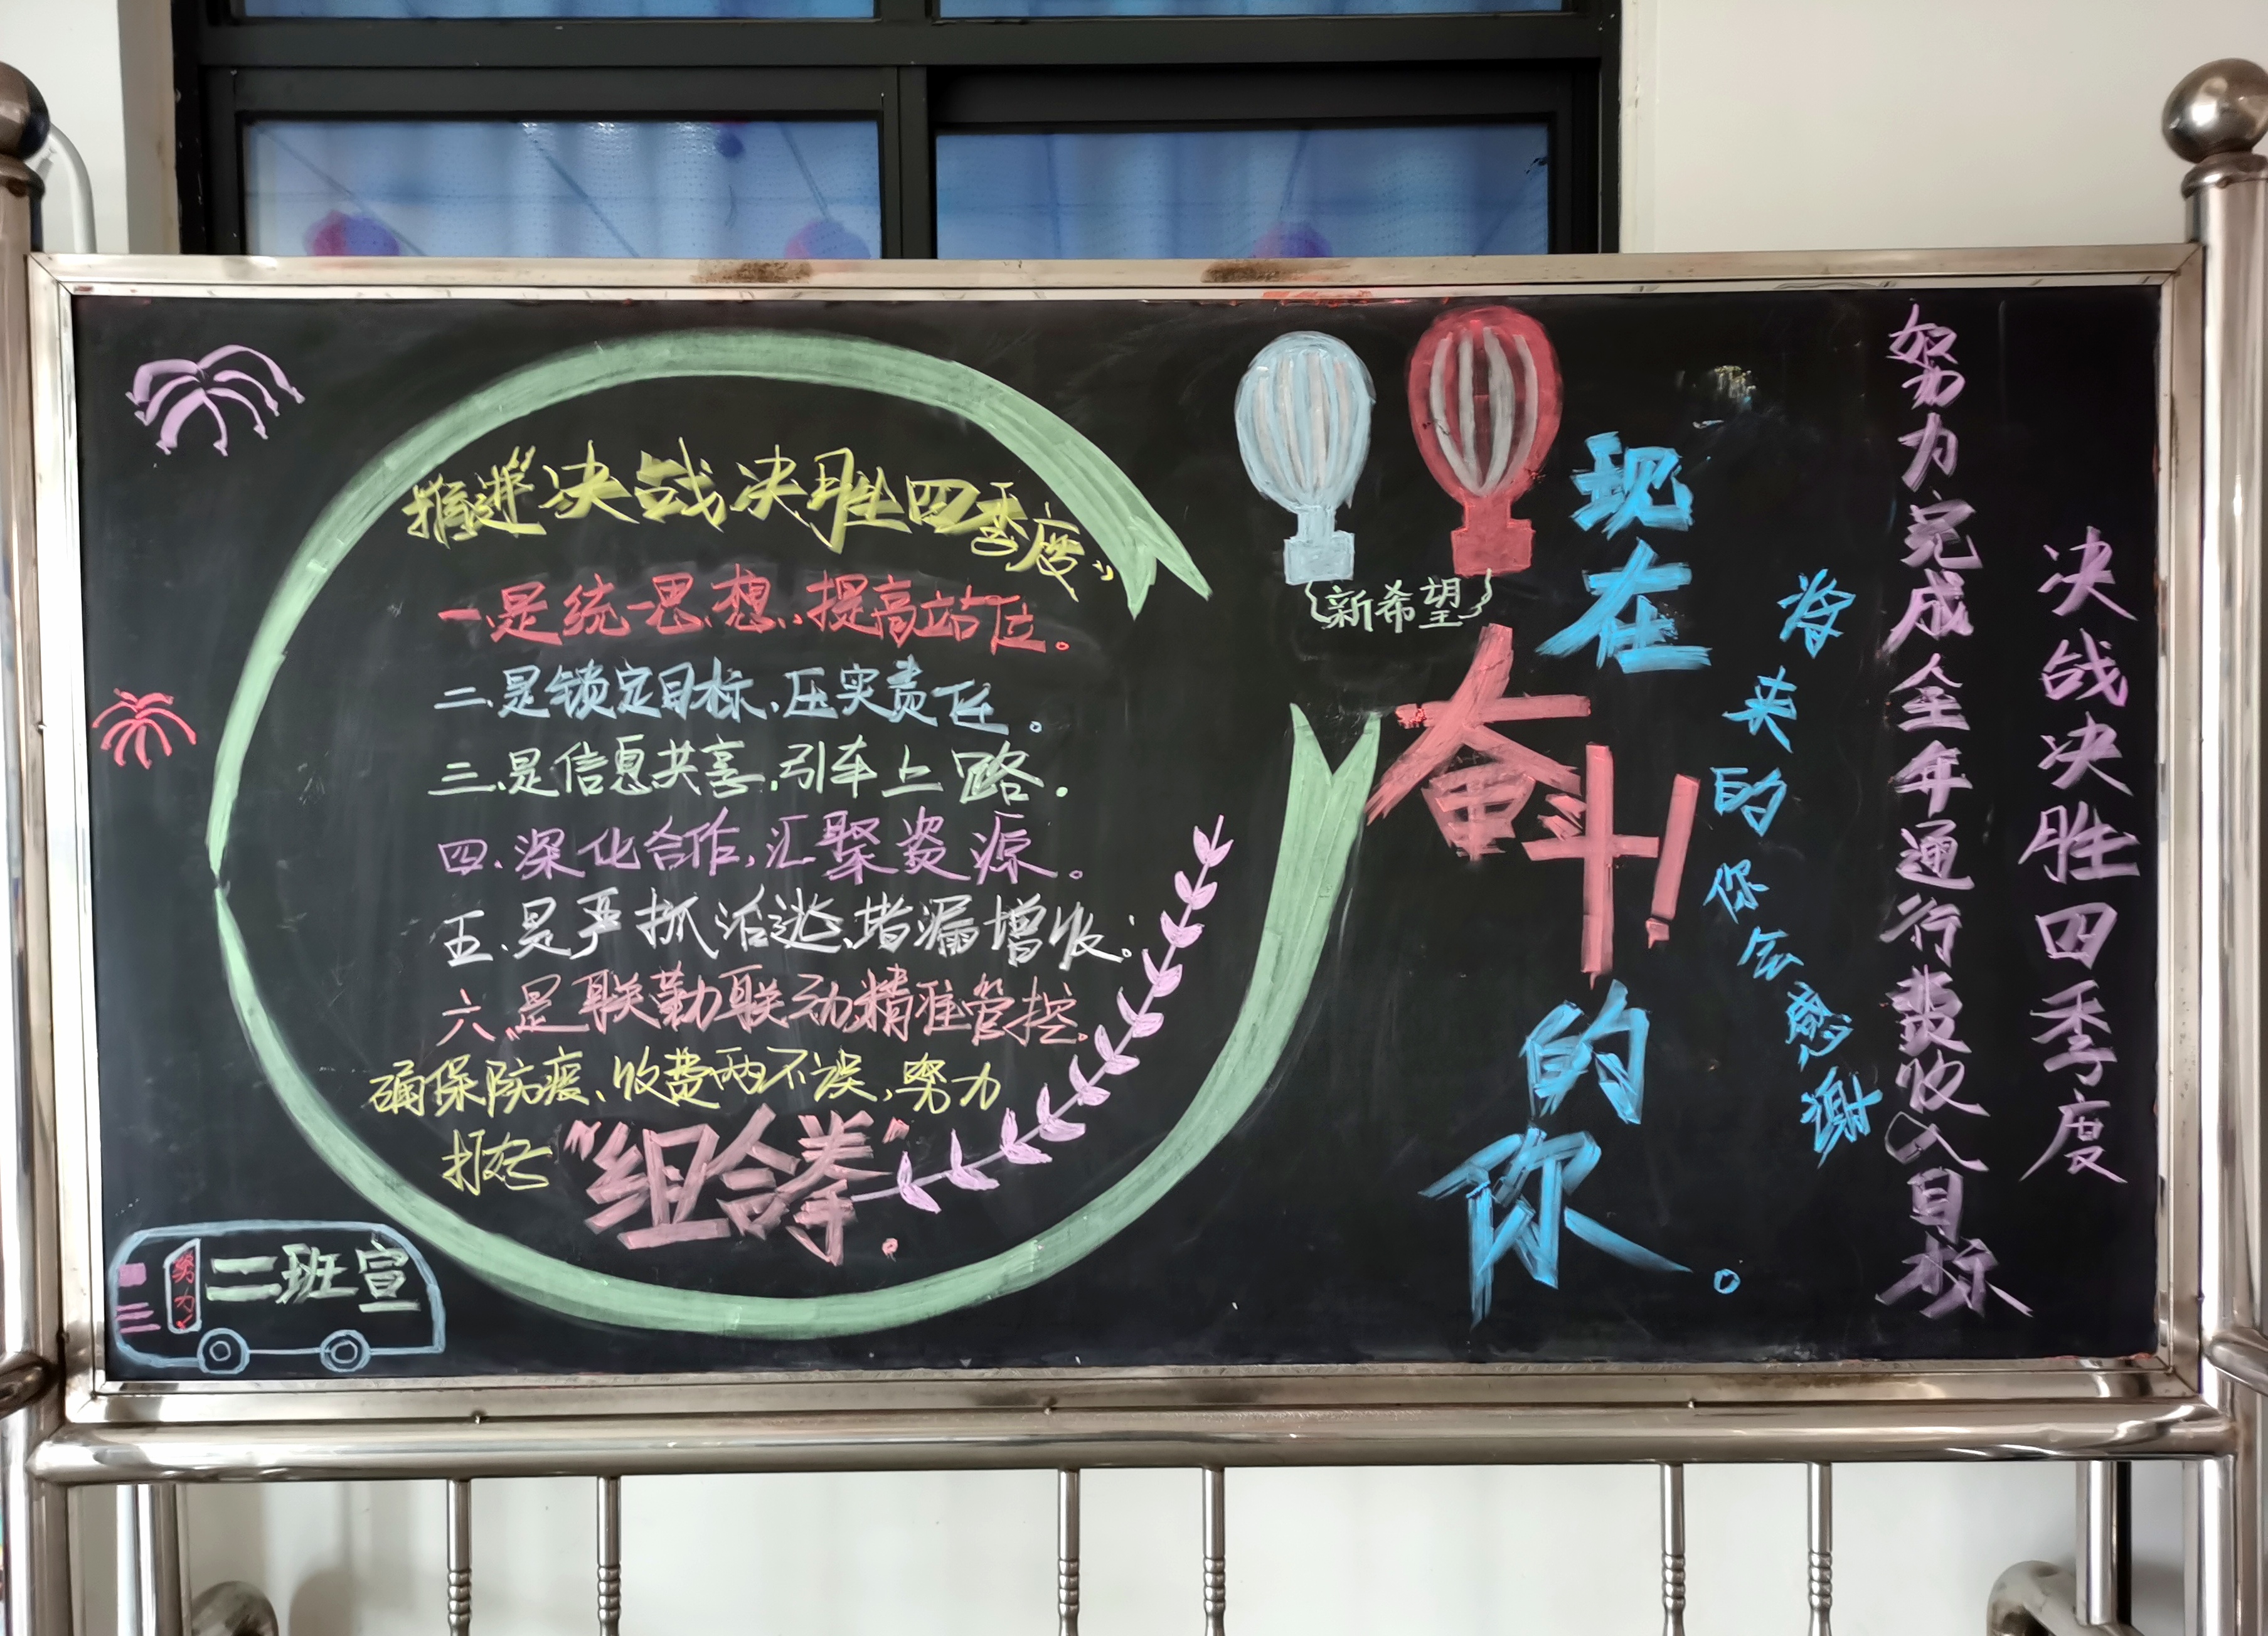 推进"决战决胜四季度"
一、是统一思想、提高站位。
二、是锁定目标、压实责任。
三、是信息共享、引车上路。
四、深化合作,汇聚资源。
五、是严抓活逃、堵漏增收。
六、是联勤联动精准管控.
确保防疫、收费两不误,努力
打好"组合拳".
努力
二班宣
新希望
现在
奋斗!
的
你。
将来的你会感谢
努力完成全年通行费收入目标
决战决胜四季度